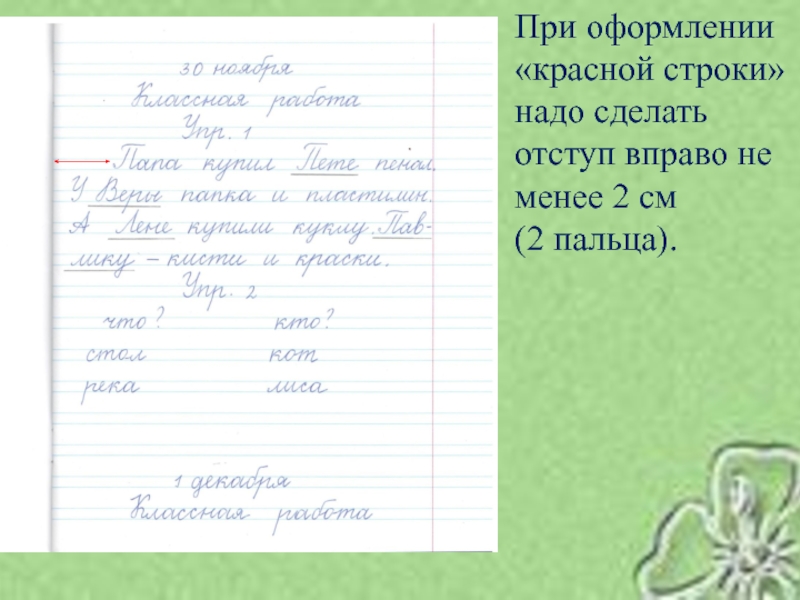 30 ноября
Классная работа
Упр. 1
Папа купил Пете пенал.
У Веры папка и пластилин.
А Лене купили куклу. Пав-
лику – кисти и краски.
Упр. 2
что? кто?
стол кот
река лиса
1 декабря
Классная работа
При оформлении
«красной строки»
надо сделать
отступ вправо не
менее 2 см
(2 пальца).